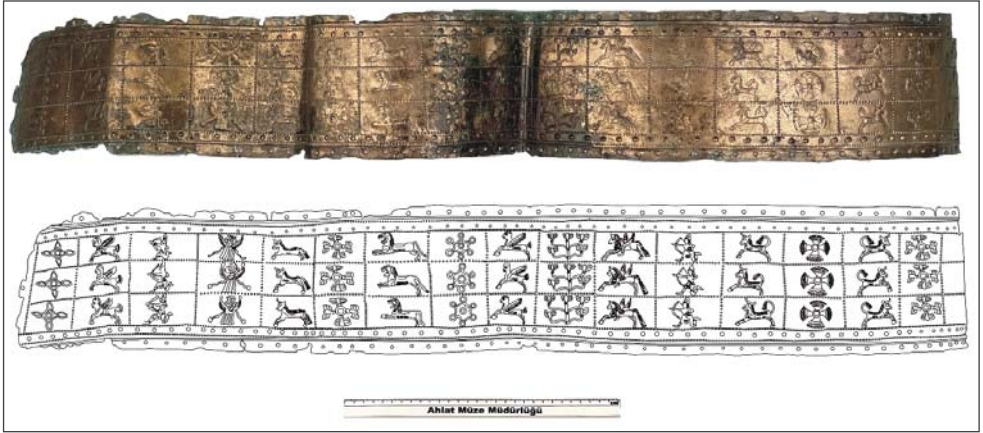 Ahlat Müze Müdürlüğü